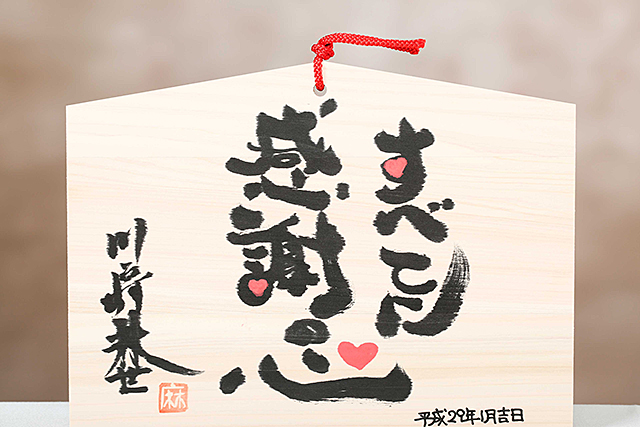 すべてに
感謝の心
川崎麻世
麻
平成29年1月吉日